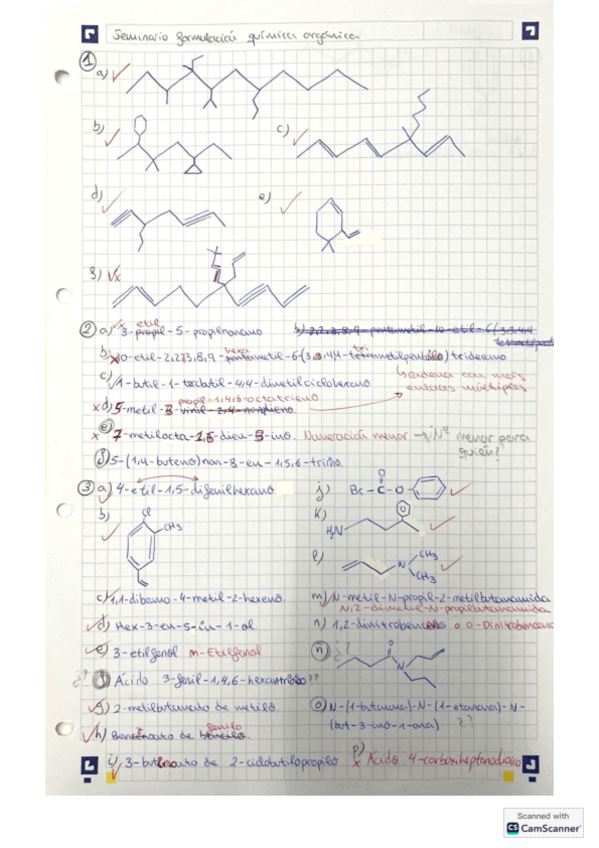 Seminario formulación química orgánica
1
a)
b)
c)
d)
e)
f)
2 a) 3-propil-5-propilnonano etil
b) 10-etil-2,2,7,3,8,9-pentametil-6-(3,3,4,4-tetrametilpentilo) trideceno hexa tri
c) 1-butil-1-tercbutil-4,4-dimetilciclohexano
cadena con más enlaces múltiples
d) 5-metil-3-vinil-2,4-nonadieno. propil-1,4,6-octatrieno
e) 7-metilocta-1,6-dien-3-ino. Numeración menor → ¿Nº menor para quien?
f) 5-(1,4-buteno)non-8-en-1,5,6-triino.
3 a) 4-etil-1,5-difenilhexano
b) Cl
CH3
c) 1,1-dibromo-4-metil-2-hexeno.
d) Hex-3-en-5-in-1-ol.
e) 3-etilfenol m-Etilfenol
f) Ácido 3-fenil-1,4,6-hexantrioico??
g) 2-metilbutanoato de metilo.
h) Benzenoato de fenilo
i) 3-butenoato de 2-ciclobutilopropilo
j) Br-C-O-
O
k) H2N
l) N CH3
CH3
m) N-metil-N-propil-2-metilbutanamida
N,2-dimetil-N-propilbutanamida
n) 1,2-dinitrobenceno o O-Dinitrobenceno
ñ) ¿?
O
N
o) N-(1-butanara)-N-(1-etanara)-N-
(but-3-ino-1-ara) ??
p) Ácido 4-carboxiheptanodioico
Scanned with
CS CamScanner